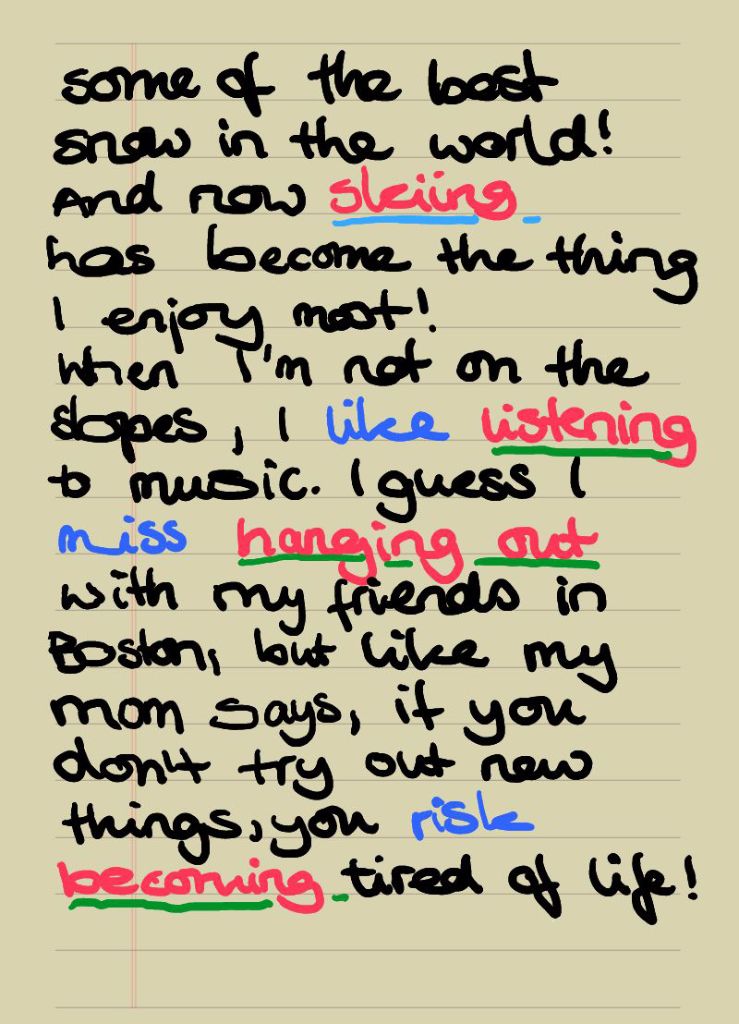 some of the best
snow in the world!
And now skiing
has become the thing
I enjoy most!
When I'm not on the
slopes, I like listening
to music. I guess I
miss hanging out
with my friends in
Boston, but like my
mom says, if you
don't try out new
things, you risk
becoming tired of life!